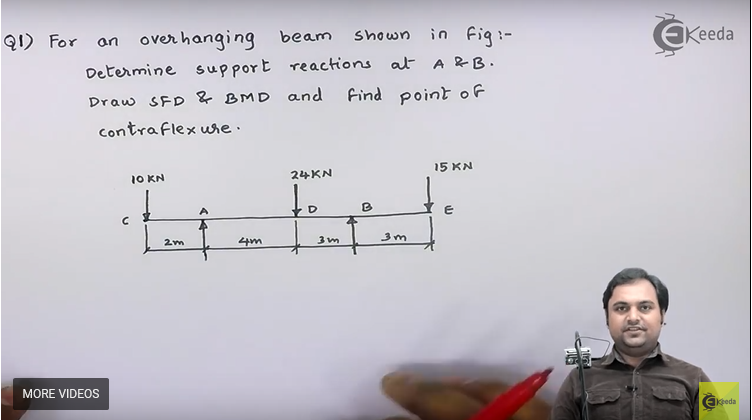 Q1) For an overhanging beam shown in Fig:-
Determine support reactions at A & B.
Draw SFD & BMD and find point of
contraflexure.
EKeeda
10 KN
24KN
15 KN
C
A
D
B
E
2m
4m
3m
3m
MORE VIDEOS
EKeeda